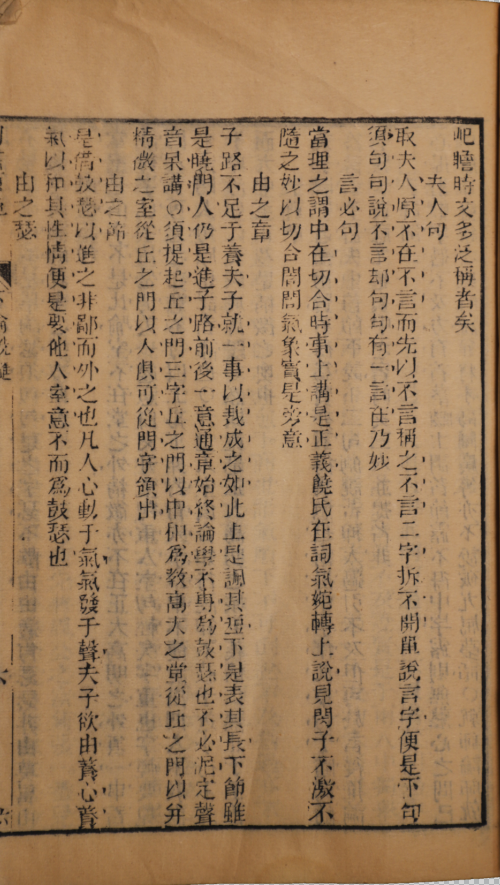 屺瞻時文多泛稱者矣
夫人句
取夫人原不在不言而先以不言稱之不言二字拆不開單說言字便是下句
須句句說不言却句句有一言在乃妙
言必句
當理之謂中在切合時事上講是正義饒氏在詞氣婉轉上說見閔子不激不
隨之妙以切合誾誾氣象實是旁意
由之章
子路不足于養夫子就一事以裁成之如此上是諷其短下是表其長下節雖
是曉門人仍是進子路前後一意通章始終論學不專為鼓瑟也不必泥定聲
音呆講○須提起丘之門三字丘之門以中和為教高大之堂從丘之門以升
精微之室從丘之門以入俱可從門字領出
由之節
是借鼓瑟以進之非鄙而外之也凡人心動于氣氣發于聲夫子欲由養心養
氣以和其性情便是要他入室意不而為鼓瑟也
由之瑟